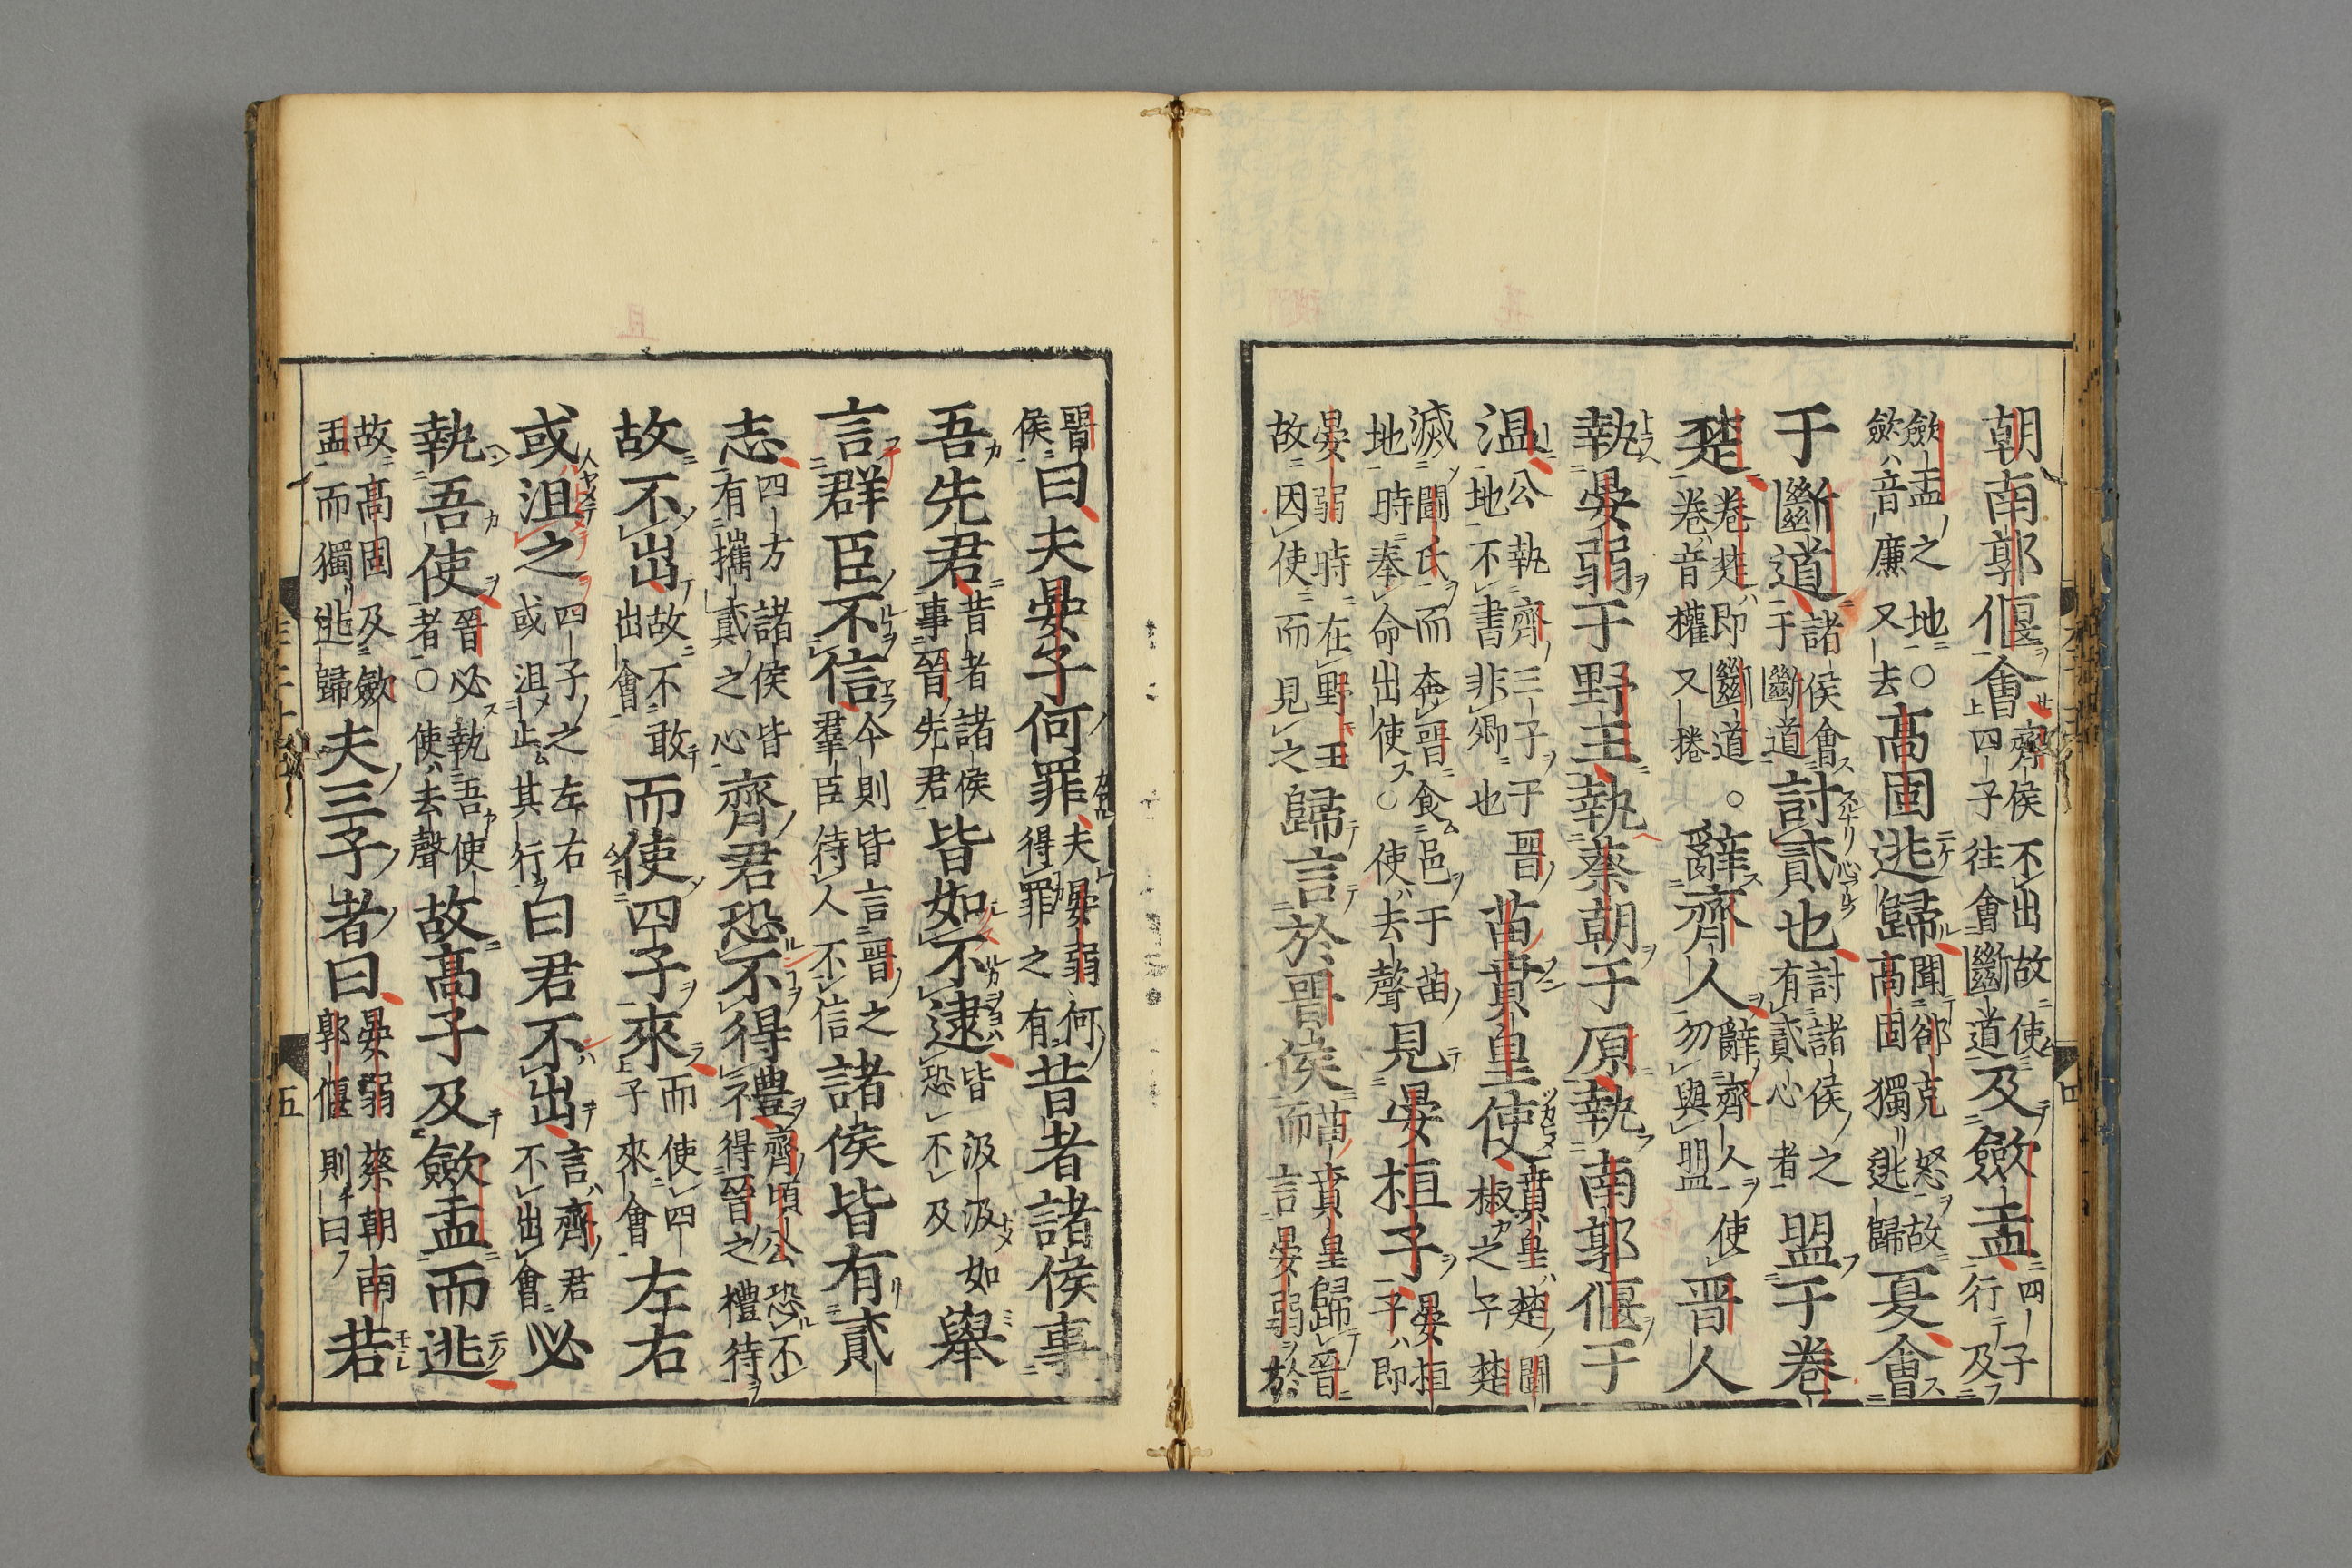 朝南郭偃會齊侯不出故使四子往會斷道及斂盂四子行及
斂盂之地○斂音廉又去高固逃歸聞郤克怒故高固獨逃歸夏會
于斷道諸侯會于斷道討貳也討諸侯之有貳心者盟于卷
楚卷楚即斷道卷音權又捲○辭齊人辭齊人使勿與盟晉人
執晏弱于野王執蔡朝于原執南郭偃于
溫公執齊三子于晉地不書非卿也苗賁皇使賁皇楚鬬椒之子楚
滅鬬氏而奔晉食邑于苗地時奉命出使○使去聲見晏桓子晏桓子即
晏弱時在野王故因使而見之歸言於晉侯苗賁皇歸晉而言晏弱於
晉侯曰夫晏子何罪夫晏弱何得罪之有昔者諸侯事
吾先君昔者諸侯事晉先君皆如不逮皆汲汲如恐不及舉
言群臣不信今則皆言晉之羣臣待人不信諸侯皆有貳
志四方諸侯皆有攜貳之心齊君恐不得禮齊頃公恐不得晉之禮待
故不出故不敢出會而使四子來而使四子來會左右
或沮之四子之左右或沮止其行曰君不出言齊君不出會必
執吾使晉必執吾使者○使去聲故高子及斂盂而逃
故高固及斂盂而獨逃歸夫三子者曰晏弱蔡朝南郭偃則曰若
五